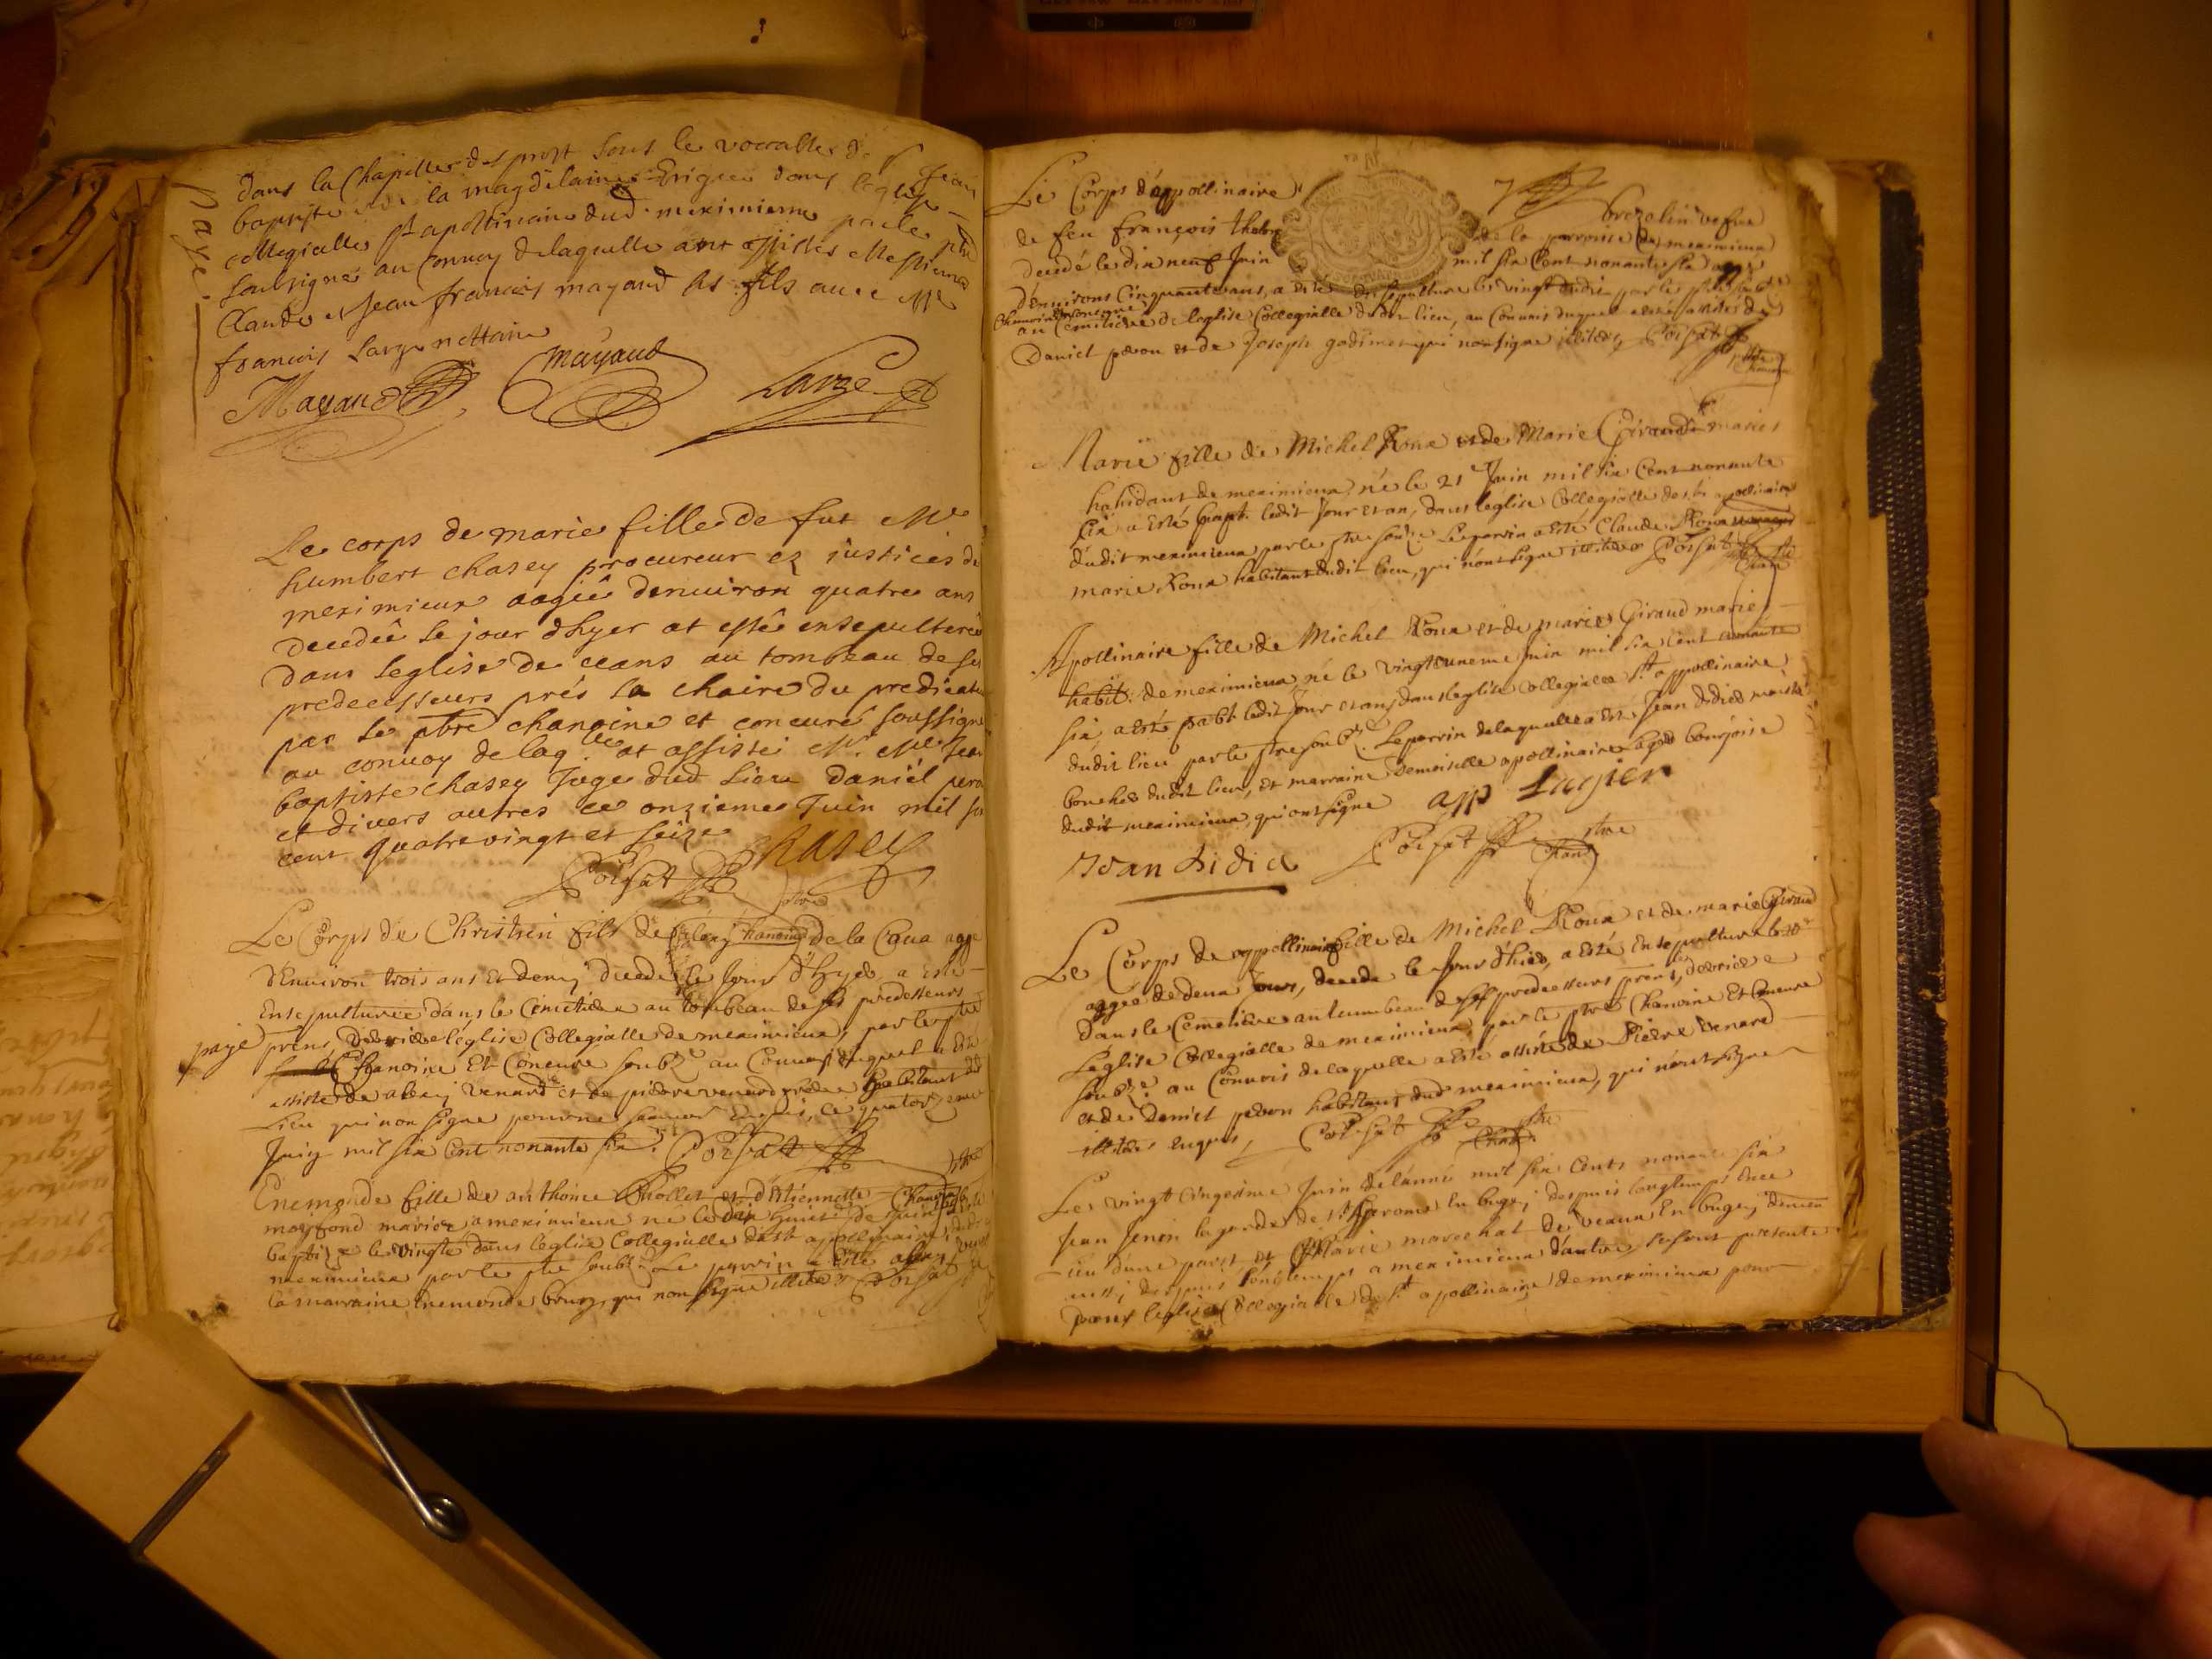 paye
dans la Chapelle des prost sous le vocable de St Jean
baptiste et de la magdelaine Erigée dans leglise
collegialle St apollinaire dud. meximieux par le ptre
soubsigné au convoy delaquelle ont assistés Me pierre
Claude et Jean francois mayaud ses fils avec Me
francois Sarze nottaire
Mayaud mayaud Sarze
Le corps de marie fille de fut Me
humbert chasey procureur ez justices de
meximieux aagée denuiron quatre ans
decedée le jour dhyer at esté ensepulterée
dans leglise de ceans au tombeau de ses
predecesseurs prés la chaire du predicateur
par le ptre chanoine et concuré soussigné
au convoy de laqlle at assisté Mr Me Jean
baptiste chasey Juge dud lieu Daniel peron
et divers autres ce onzieme Juin mil six
cent quatre vingt et seize
Poisat ptre Chasey
Le Corps de Christien fils de de la Coua agé
d'Enuiron trois ans Et demy decedé le Jour d'hyer, a esté
Ensepulturée dans le Cemetiere au tombeau de ses predesseurs
paye
prens, derriere l'église Collegialle de meximieux, par le ptre
Chanoine Et Concure soubz.né au Convoy duquel a esté
assisté de venard et de pierre venard habitant dud.
Lieu qui non signe pour ne scavoir enquis, ce quatorzeme
Juin mil six Cent nonante six. Poisat ptre
Enemonde fille de anthoine Chollet et d'Estiennette
mariez a meximieux né le dix huict de Juin
baptizé le vingte dans leglise Collegialle de St apollinaire
meximieux par le ptre soubz.né Le parrin a Esté
la marraine Enemonde qui non signe illiteres Poisat
Le Corps d'appollinaire brezolin vefue
de feu françois de la parroisse de meximieux
decedé le dix neuf Juin mil six Cent nonante six aggé
d'environs Cinquante ans, a esté Ensepulturé le vingt dudit par les ptre
Chanoine Concuré
au Cemetiere de leglise Collegialle dudit lieu, au Convois duquel a esté assisté de
Daniel peron et de Joseph godimer qui non signe illiteres Poisat ptre
Marie fille de Michel Roux et de Marie Giraud mariés
habidant de meximieux, né le 21 Juin mil six Cent nonante
six a esté bapt. ledit Jour et an, dans leglise Collegialle de St apollinaire
dudit meximieux par le ptre soubz. Le parrin a esté Claude Roux
marie Roux habitant dudit lieu, qui n'ont signe illiteres Poisat ptre
Apollinaire fille de Michel Roux et de marie Giraud mariés
habit. de meximieux, né le vingt uneme Juin mil six Cent nonante
six, a esté bapt. ledit Jour et an, dans leglise Collegialle St appollinaire
dudit lieu par le ptre soubz. Le parrin delaquelle a esté Jean didier maistre
boucher dudit lieu, et marraine Demoiselle apollinaire Lagier bourjoise
dudit meximieux, qui ont signe app Lagier
Jean didier Poisat ptre Chan.
Le Corps de appollinaire fille de Michel Roux et de marie Giraud
aggee de deux Jours, decede le Jour d'hier, a esté Ensepulture le
dans le Cemetiere au tumbeau de ses predecesseurs prens, derriere
l'église Collegialle de meximieux, par le ptre Chanoine Et Concure
soubz.né au Convois delaquelle a esté assisté de Pierre venard
et de Daniel peron habitans dud meximieux, qui n'ont signe
illiteres enquis, Poisat ptre Chan.
Le vingt cinqesime Juin de lanné mil six Cents nonante six
Jean Jenin de St Gerome En bugey, despuis longtemps Ence
lieu d'une part, et Marie marechal de veaux En bugey, demeu
aussi despuis longtemps a meximieux d'autre, se sont presente
dans leglise Collegialle de St apollinaire de meximieux pour